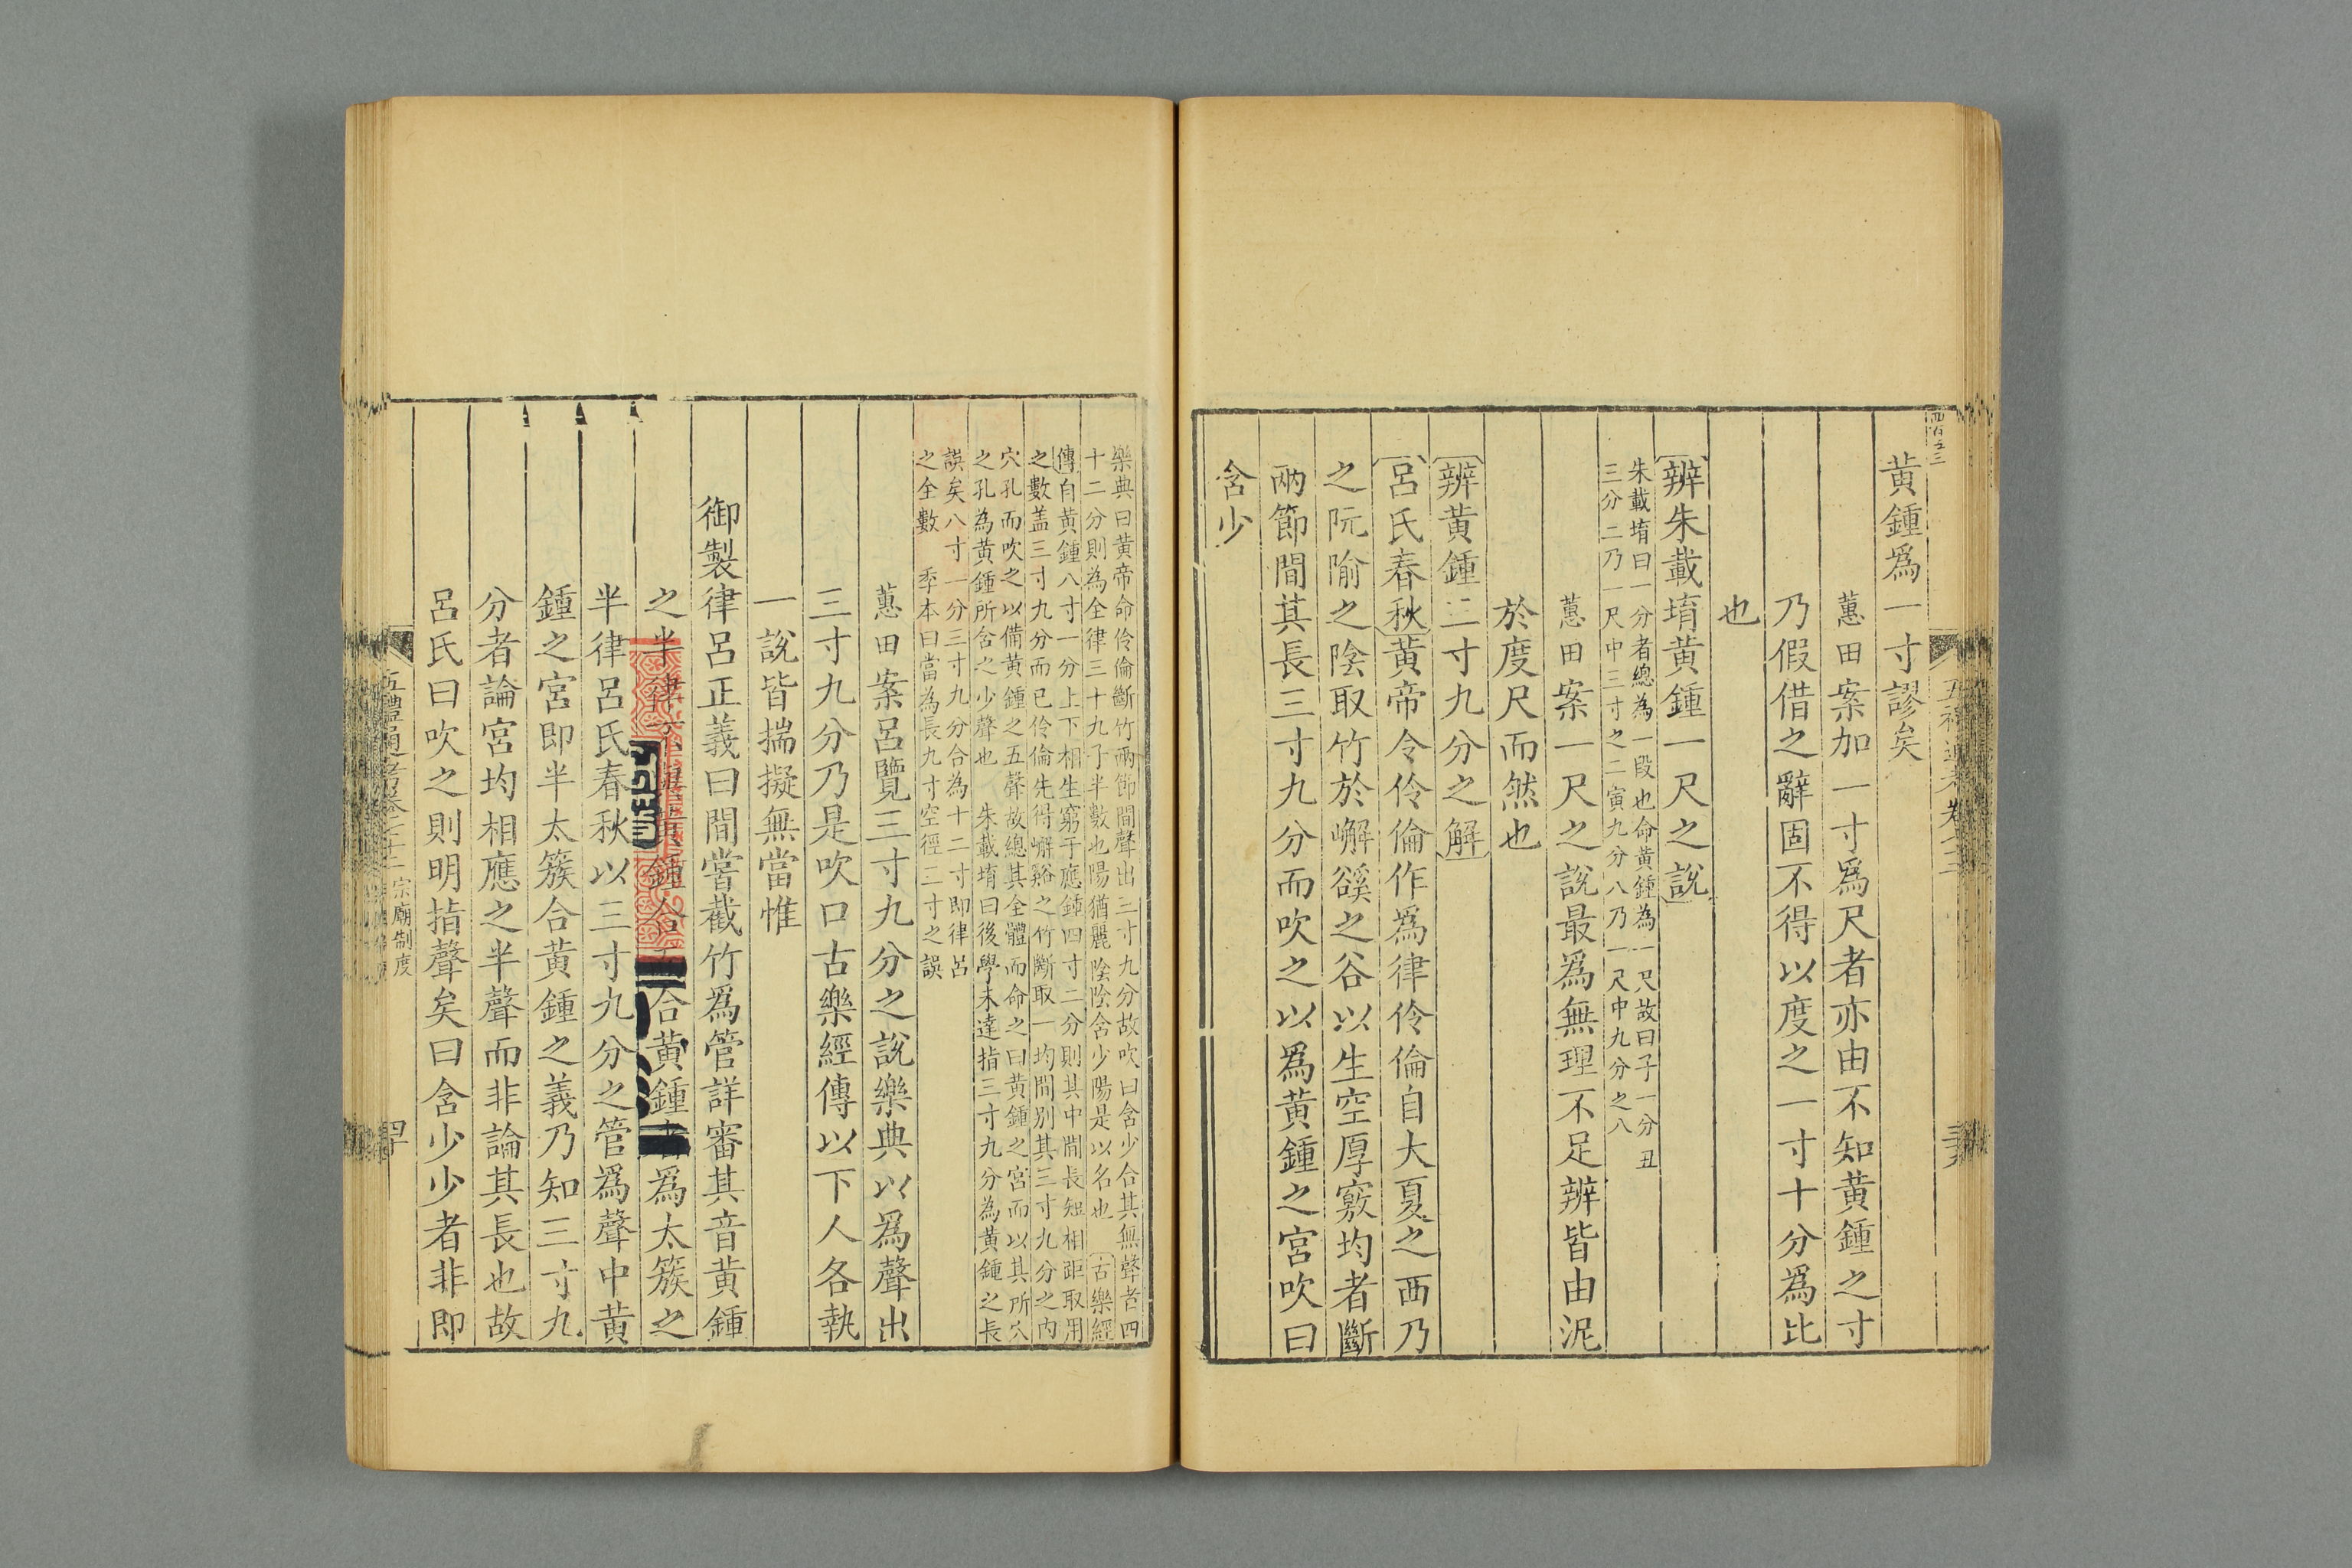 黃鍾爲一寸謬矣
蕙田案加一寸爲尺者亦由不知黃鍾之寸
乃假借之辭固不得以度之一寸十分爲比
也
辨朱載堉黃鍾一尺之說
朱載堉曰一分者總為一段也命黃鍾為一尺故曰子一分丑
三分二乃一尺中三寸之二寅九分八乃一尺中九分之八
蕙田案一尺之說最爲無理不足辨皆由泥
於度尺而然也
辨黃鍾三寸九分之解
呂氏春秋黃帝令伶倫作爲律伶倫自大夏之西乃
之阮隃之陰取竹於嶰谿之谷以生空厚竅均者斷
兩節間其長三寸九分而吹之以爲黃鍾之宮吹曰
含少
樂典曰黃帝命伶倫斷竹兩節間聲出三寸九分故吹曰含少合其無聲者四
十二分則為全律三十九子半數也陽猶麗陰陰含少陽是以名也 古樂經
傳自黃鍾八寸一分上下相生窮于應鍾四寸二分則其中間長短相距取用
之數盖三寸九分而已伶倫先得嶰谿之竹斷取一均間别其三寸九分之内
穴孔而吹之以備黃鍾之五聲故總其全體而命之曰黃鍾之宮而以其所穴
之孔為黃鍾所含之少聲也 朱載堉曰後學未達指三寸九分為黃鍾之長
誤矣八寸一分三寸九分合為十二寸即律呂
之全數 季本曰當為長九寸空徑三寸之誤
蕙田案呂覽三寸九分之說樂典以爲聲出
三寸九分乃是吹口古樂經傳以下人各執
一說皆揣擬無當惟
御製律呂正義曰間嘗截竹爲管詳審其音黃鍾
之半律不與黃鍾合而合黃鍾者爲太簇之
半律呂氏春秋以三寸九分之管爲聲中黃
鍾之宮即半太簇合黃鍾之義乃知三寸九
分者論宮均相應之半聲而非論其長也故
呂氏曰吹之則明指聲矣曰含少少者非即
五禮通考卷 宗廟制度